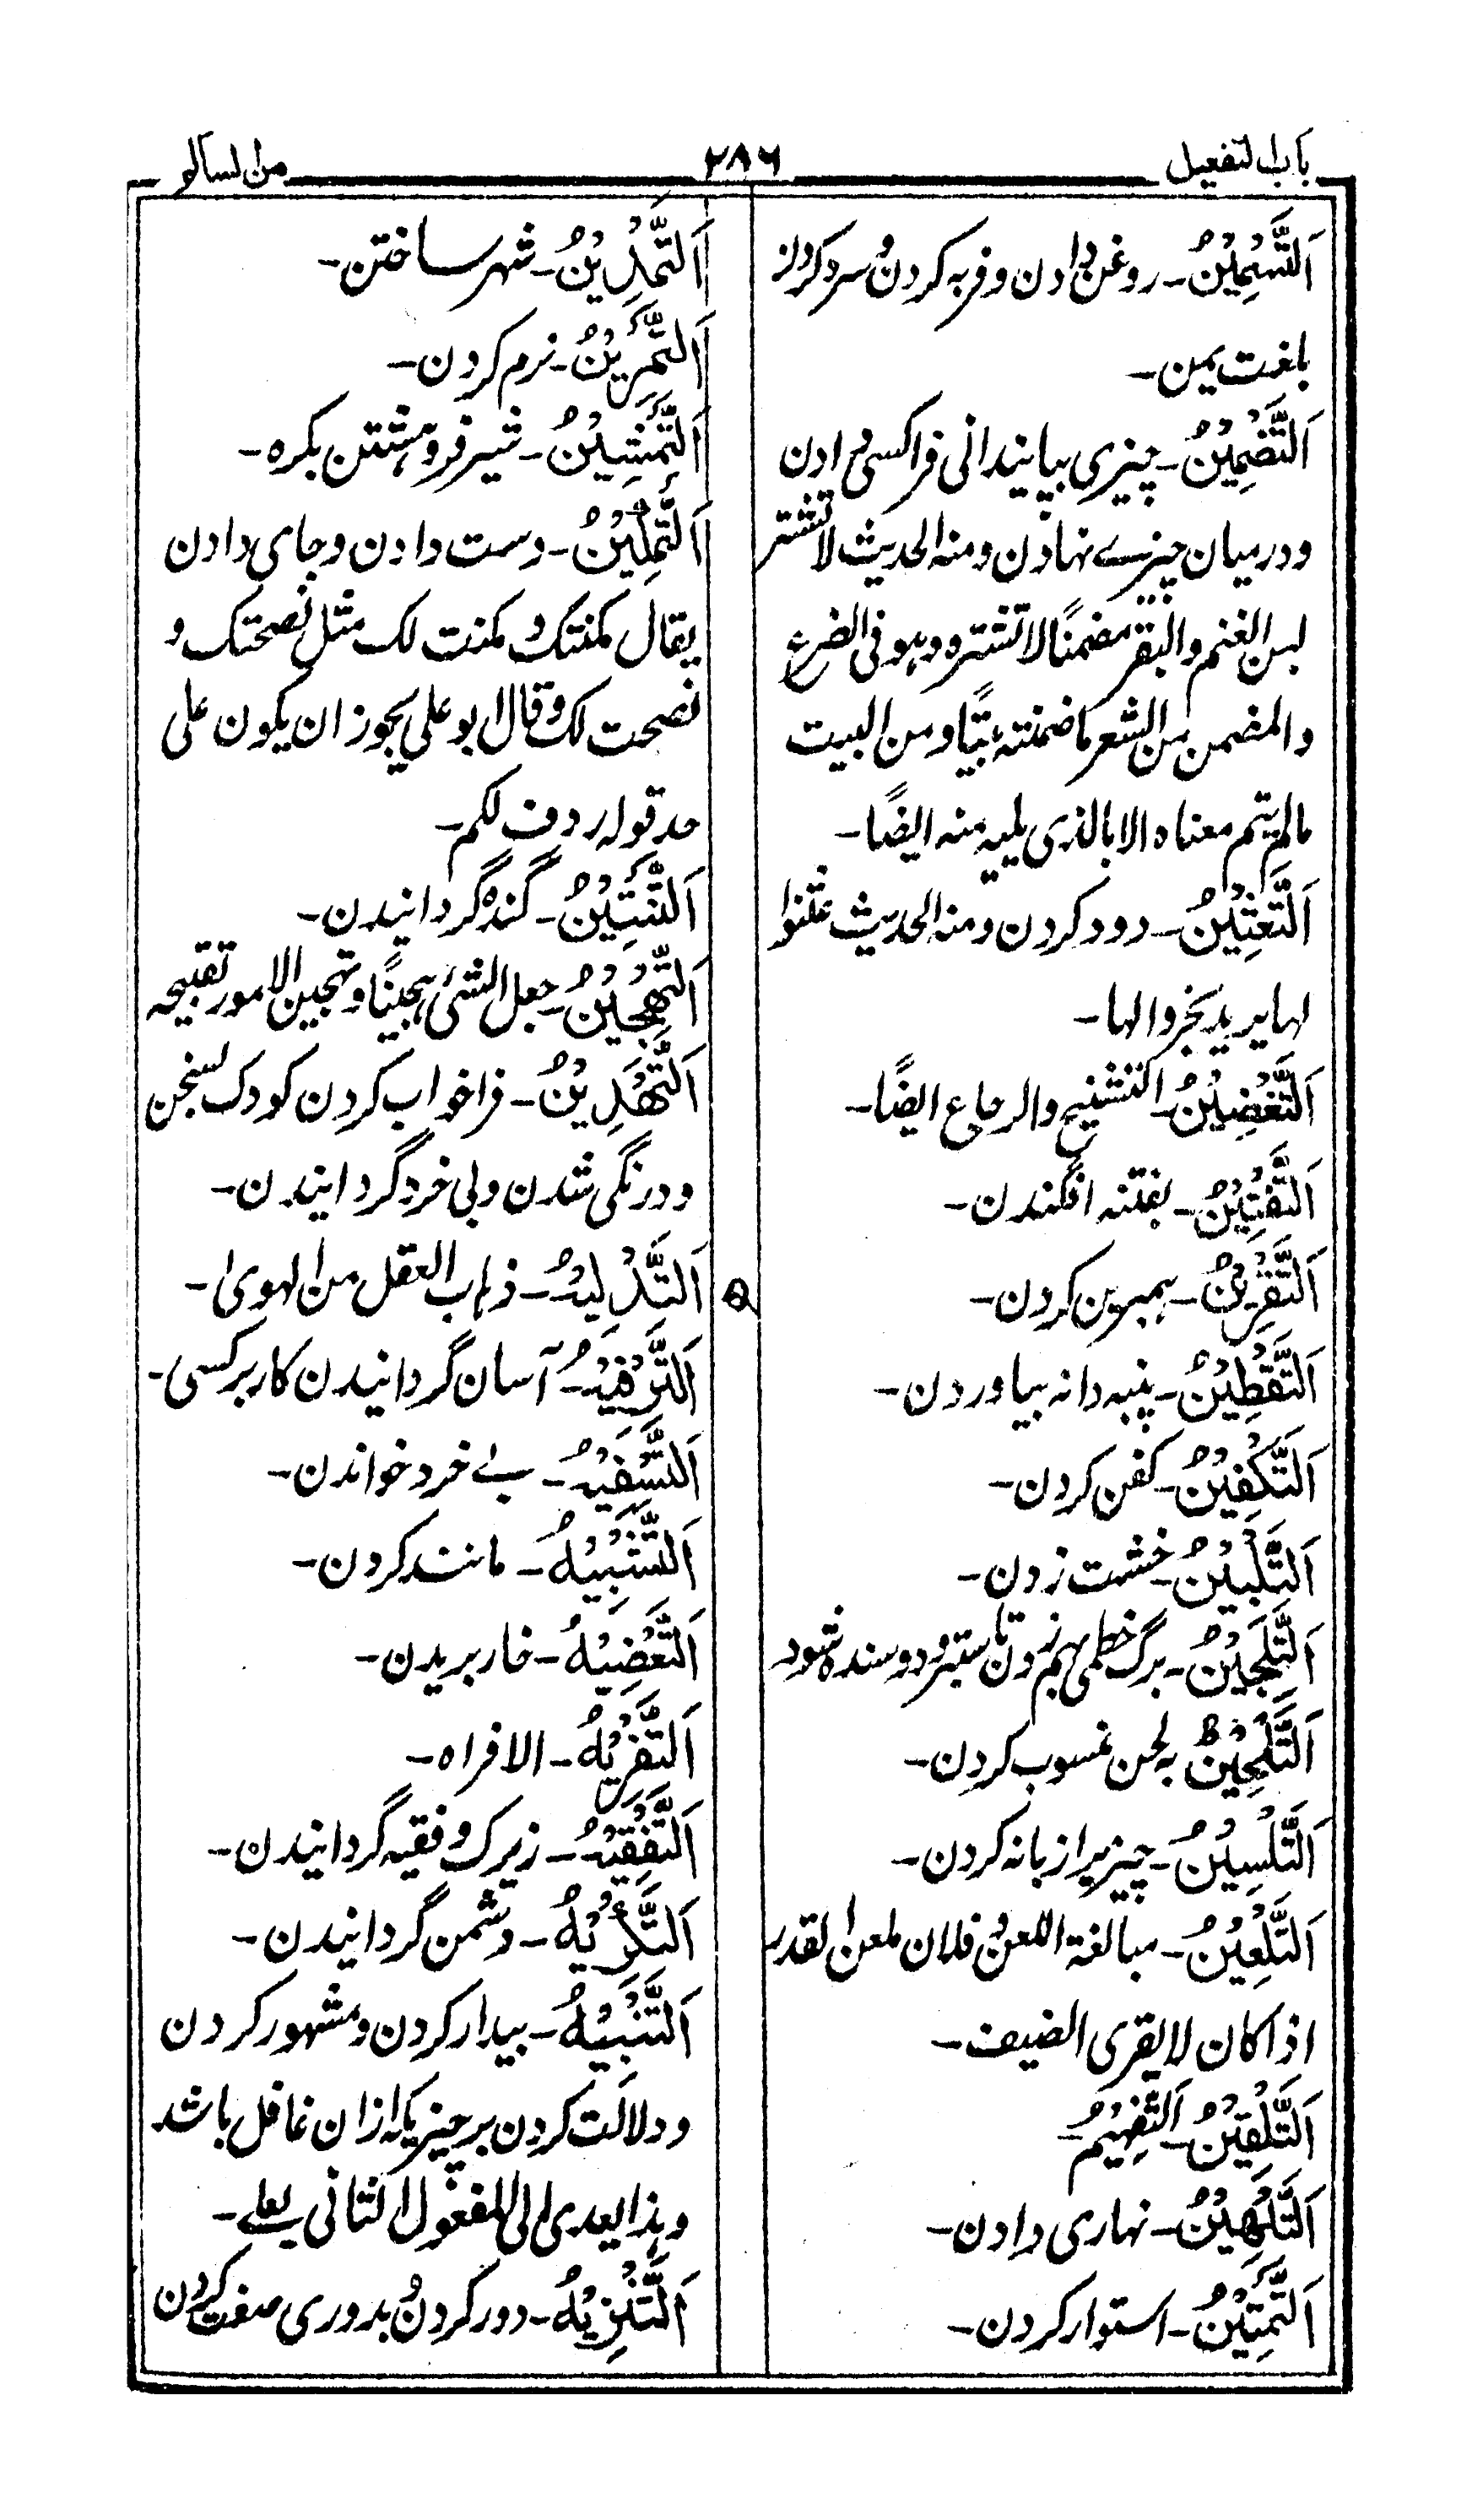 باب التفعیل
۲۸۶
من السالم
اَلتَّسْمِيْنُ۔ روغن دادن و فربه کردن و سرد کردن
بلغت یمن۔
اَلتَّضْمِيْنُ۔ چیزی بپایندانی فرا کسی دادن
و درمیان چیزے نهادن و منه الحدیث لا تشتر
لبن الغنم والبقر مضمنًا لا تشتره و هو فی الضرع
والمضمن من الشعر ما ضمنته بیتًا و من البیت
مالم یتم معناه الا بالذی یلیه منه ایضًا۔
اَلتَّعْثِيْنُ۔ دود کردن و منه الحدیث عثنوا
لها یرید بخروا لها۔
اَلتَّغْضِيْنُ۔ التشنیج والرجاع ایضًا۔
اَلتَّفْتِيْنُ۔ بفتنه افگندن۔
اَلتَّقْرِيْنُ۔ بهمبرین کردن۔
اَلتَّقْطِيْنُ۔ پنبه دانه بیاوردن۔
اَلتَّكْفِيْنُ۔ کفن کردن۔
اَلتَّلْبِيْنُ۔ خشت زدن۔
اَلتَّلْجِيْنُ۔ برگ خطمی بهم زدن تا ستبر و دوسنده شود
اَلتَّلْحِيْنُ به لحن منسوب کردن۔
اَلتَّلْسِيْنُ۔ چیزیرا زبانه کردن۔
اَلتَّلْعِيْنُ۔ مبالغة اللعن و فلان ملعن القدر
اذا کان لا یقری الضیف۔
اَلتَّلْقِيْنُ۔ اَلتَّفْهِيْمُ
اَلتَّلْهِيْنُ۔ نهاری دادن۔
اَلتَّمْتِيْنُ۔ استوار کردن۔
اَلتَّمْدِيْنُ۔ شهر ساختن۔
اَلتَّمْرِيْنُ۔ نرم کردن۔
اَلتَّمْشِيْنُ۔ شیر فروهشتن بکره۔
اَلتَّمْكِيْنُ۔ دست دادن و جای دادن
یقال مکنتک و مکنت لک مثل نصحتک و
نصحت لک و قال ابو علی یجوز ان یکون علی
حد قوله ردف لکم۔
اَلتَّنْتِيْنُ۔ گنده گردانیدن۔
اَلتَّهْجِيْنُ۔ جعل الشئ هجینًا و تهجین الامور تقبیحه
اَلتَّهْدِيْنُ۔ فراخواب کردن کودک بسخن
و درنگی شدن و بی خرد گردانیدن۔
ه
اَلتَّدْلِيْهُ۔ ذهاب العقل من الهوی۔
اَلتَّرْفِيْهُ۔ آسان گردانیدن کار بر کسی۔
اَلتَّسْفِيْهُ۔ بے خرد خواندن۔
اَلتَّشْبِيْهُ۔ مانند کردن۔
اَلتَّعْضِيْهُ۔ خار بریدن۔
اَلتَّفْرِيْهُ۔ الافراه۔
اَلتَّفْقِيْهُ۔ زیرک و فقیه گردانیدن۔
اَلتَّكْرِيْهُ۔ دشمن گردانیدن۔
اَلتَّنْبِيْهُ۔ بیدار کردن و مشهور کردن
و دلالت کردن بر چیزیکه ازان غافل باشد
و هذا یعدی الی المفعول الثانی بعلے۔
اَلتَّنْزِيْهُ۔ دور کردن و بدوری صفت کردن